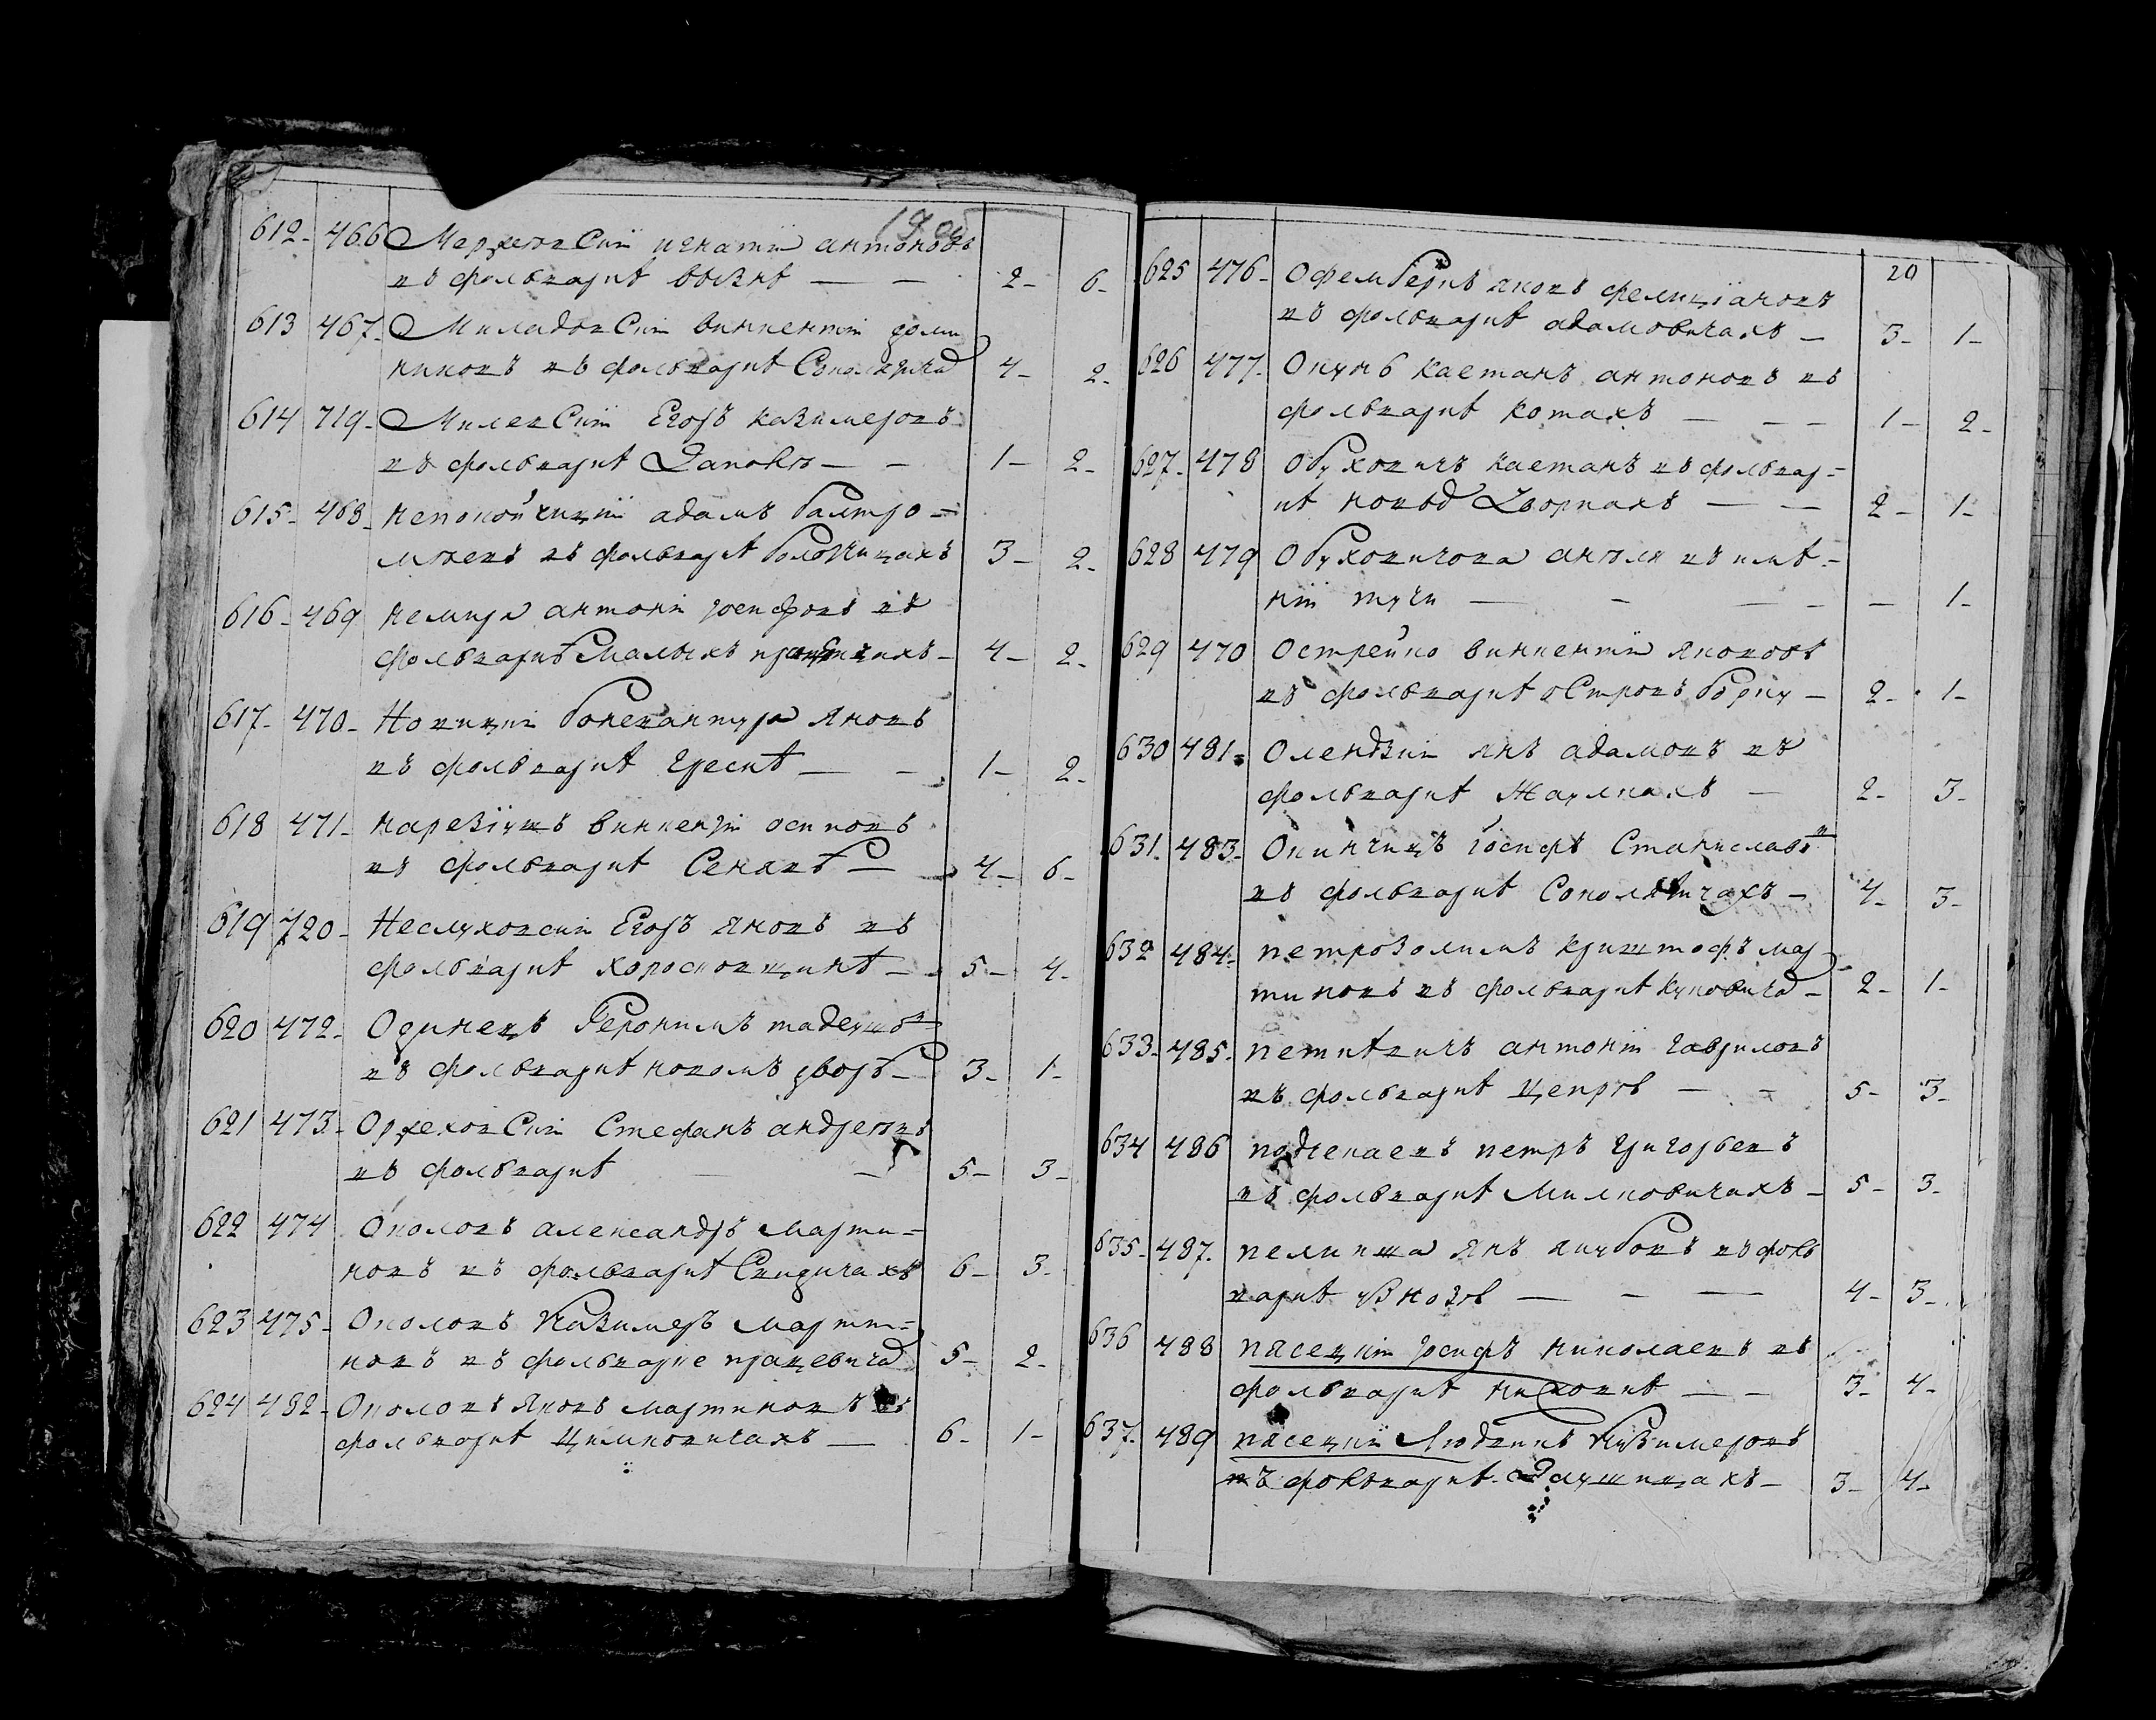 19 об
612 - 466 Маржевский игнатий антоновъ
въ фольварке вызне — — 2 - 6 -
613 467 - Миладовский винцентий доми
никовъ въ фольварке 4 - 2 -
614 719 - Милевский Егоръ казимеровъ
въ фольварке — — 1 - 2 -
615 - 468 - непокойчицкий адамъ балтро-
меевъ въ фольварке 3 - 2 -
616 - 469 немира антоній іосифовъ въ
фольварке малыхъ - 4 - 2 -
617 - 470 - Новицкий бонавантура яновъ
въ фольварке греске — — 1 - 2 -
618 471 - нарезіушъ винценти осиповъ
въ фольварке — 4 - 6 -
619 720 - Неслуховский Егоръ яновъ въ
фольваркѣ — 5 - 4 -
620 472 - Одинецъ Героним тадеушов
въ фольваркѣ новомъ дворе - 3 - 1 -
621 473 - Оржеховский Стефанъ андреевъ
въ фольваркѣ — 5 - 3 -
622 474 Ополовъ александръ марти-
новъ въ фольваркѣ 6 - 3 -
623 475 - Ополовъ Казимеръ марти-
новъ въ фольварке працевичах 5 - 2 -
624 482 - Ополовъ Яковъ мартиновъ въ
фольваркѣ Цимковичахъ — 6 - 1 -
20
625 476 - Офембергъ яковъ фелиціановъ
въ фольваркѣ адамовичахъ — 3 - 1 -
626 477 - Окунь каетанъ антоновъ въ
фольваркѣ котахъ — — — 1 - 2 -
627 - 478 Обуховичъ каетанъ въ фольвар-
кѣ новод Дворкахъ — — 2 - 1 -
628 479 Обуховичова анъеля въ имѣ-
нии тучи — - — - — 1 -
629 470 Острейко винцентий яковов
въ фольваркѣ остров борку — 2 - 1 -
630 481 - Олендзкий янъ адамовъ въ
фольваркѣ Жаулкахъ — 2 - 3 -
631 - 483 - Окинчицъ іосифъ Станиславв
въ фольваркѣ - 4 - 3 -
632 484 - петрозолимъ криштофъ мар-
тиновъ въ фольваркѣ куновича - 2 - 1 -
633 - 485 - петкевичъ антоній гавриловъ
въ фольваркѣ Цепров — - 5 - 3 -
634 486 поджепаевъ петръ григорьевъ
въ фольваркѣ Милковичахъ - 5 - 3 -
635 - 487 - пеликша янъ якубовъ въ фолъ
варкѣ узнозъ — - — 4 - 3 -
636 488 пясецкий іосифъ николаевъ въ
фольваркѣ — — 3 - 4 -
637 - 489 пясецкий Людвикъ Казимеровъ
въ фолъваркѣ - 3 - 4 -